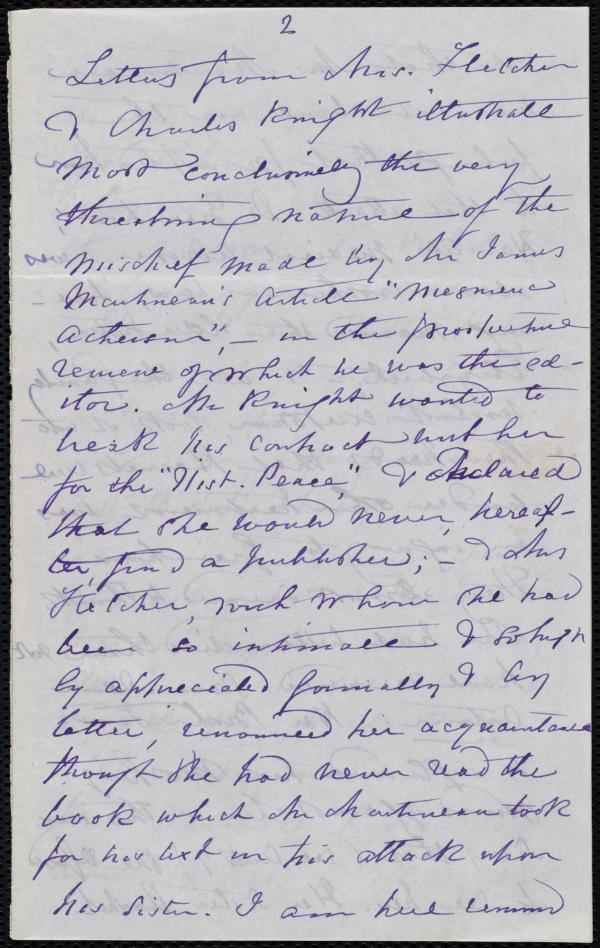 2
Letters from Mrs. Fletcher
& Charles Knight illustrate
most conclusively the very
threatening nature of the
mischief made by Mr James
Martineau's article "Mesmeric
Atheism", – in the Prospective
review of which he was the ed-
itor. Mr Knight wanted to
break his contract with her
for the "Hist. Peace", & declared
that she would never, hereaf-
ter, find a publisher; – & Mrs
Fletcher, with whom she had
been so intimate & so high
ly appreciated formally & by
letter, renounced her acquaintance
though she had never read the
book which Mr Martineau took
for his text in his attack upon
his sister. I am here